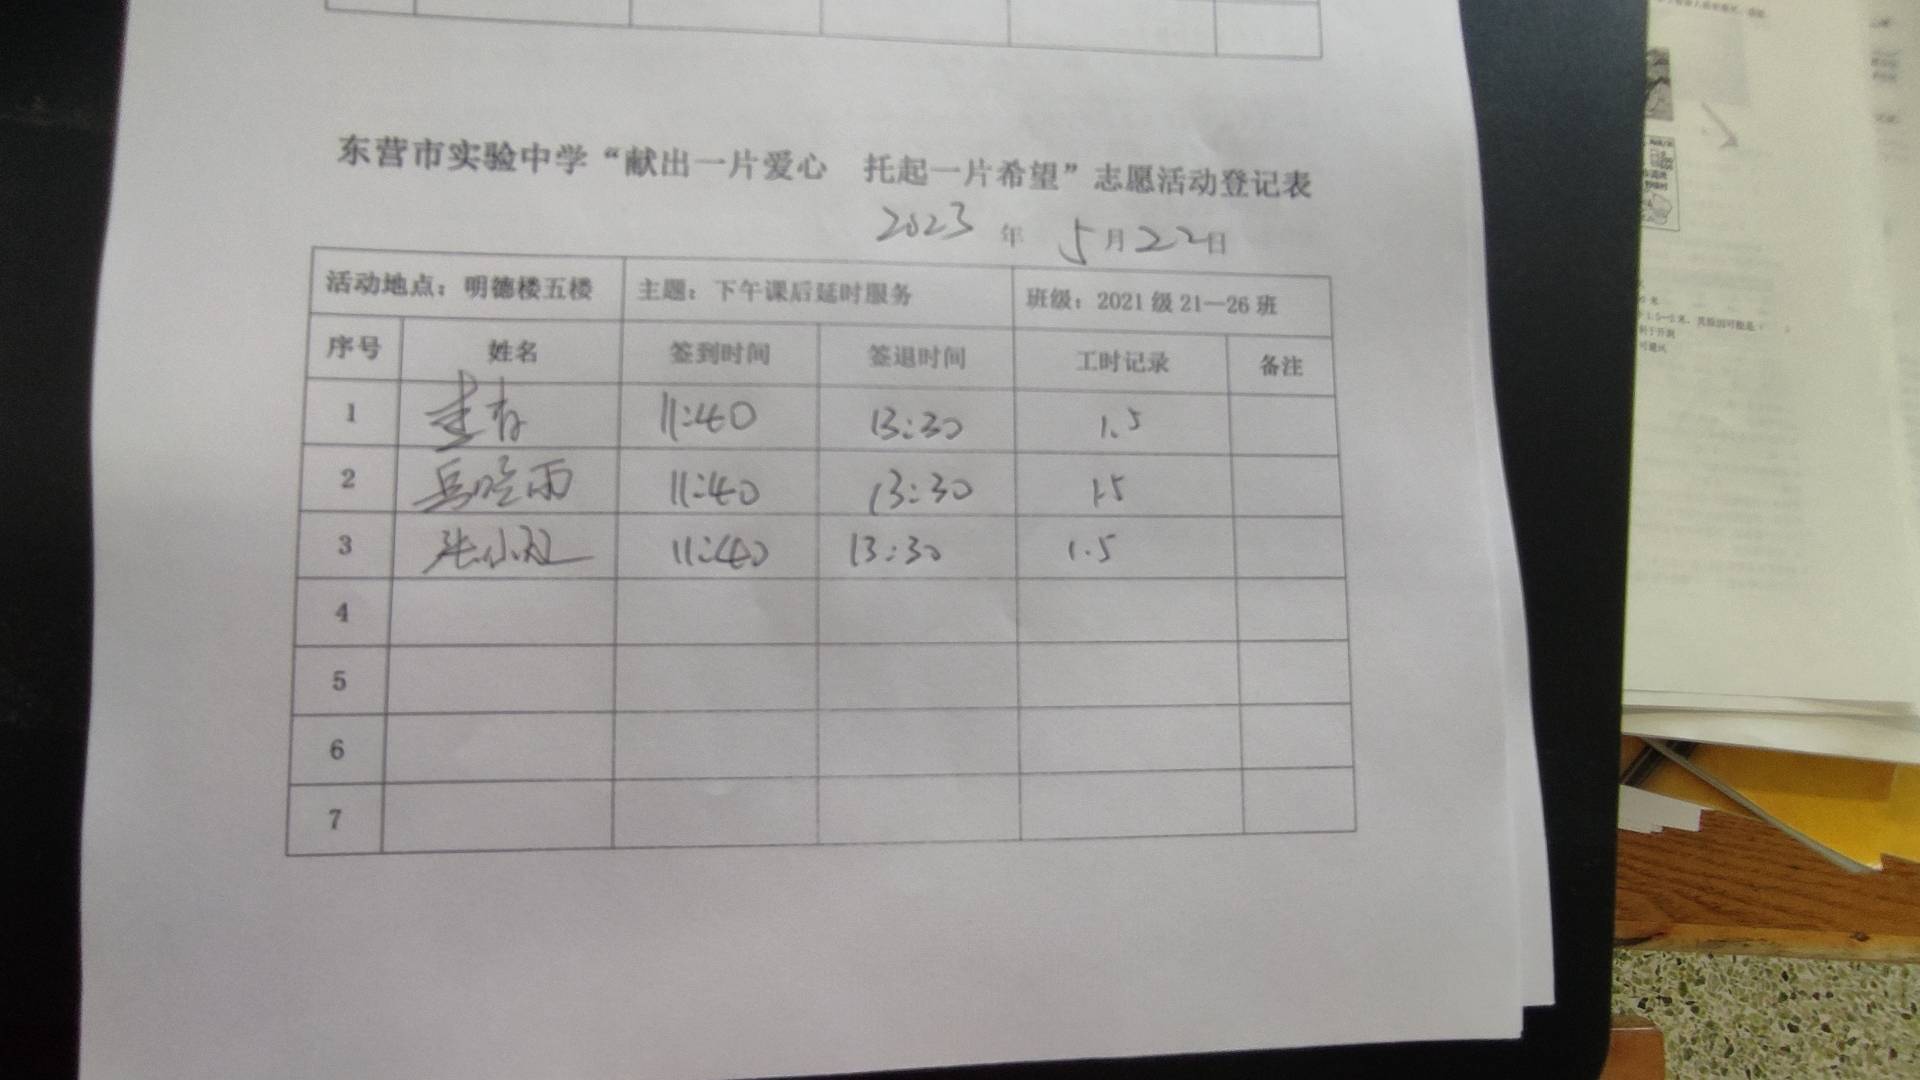 东营市实验中学“献出一片爱心 托起一片希望”志愿活动登记表
2023 年 5 月 22 日
活动地点：明德楼五楼 主题：下午课后延时服务 班级：2021 级 21—26 班
序号 姓名 签到时间 签退时间 工时记录 备注
1 11:40 13:30 1.5
2 岳晓雨 11:40 13:30 1.5
3 11:40 13:30 1.5
4
5
6
7